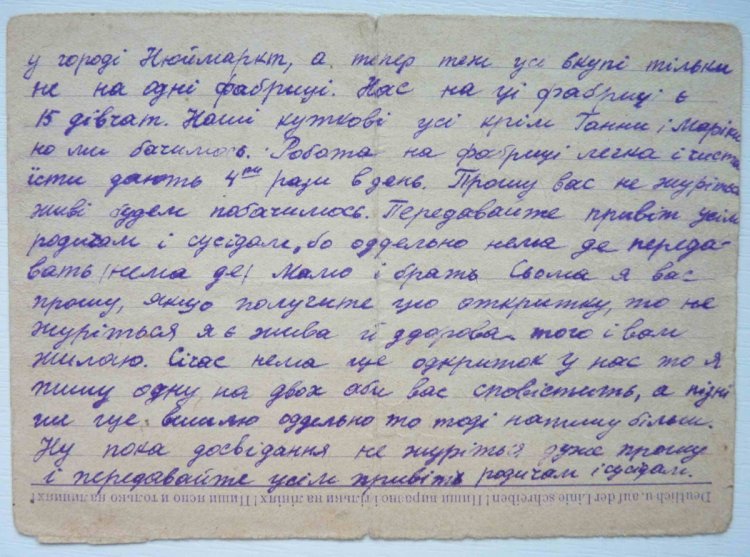 у городі Нюймаркт, а тепер теж усі вкупі тільки
не на одні фабриці. Нас на ці фабриці є
15 дівчат. Наші куткові усі крім Ганни і Маріки
но ми бачимось. Робота на фабриці легка і чиста
їсти дають 4 ри рази в день. Прошу вас не журіться
живі будем побачимось. Передавайте привіт усім
родичам і сусідам, бо оддельно нема де переда-
вать (нема де) Мамо і брать Сьома я вас
прошу, якщо получите цю открытку, то не
журіться я є жива й здорова того і вам
жилаю. Січас нема ще одкриток у нас то я
пишу одну на двох аби вас сповістить, а пізні
ши ще вишлю оддельно то тоді напишу більш.
Ну пока досвідання не журіться дуже прошу
і передавайте усім привіть родичам і сусідам.
Deutlich u. auf der Linie schreiben! Пиши виразно і тільки на лініях! Пиши ясно и только на линиях!